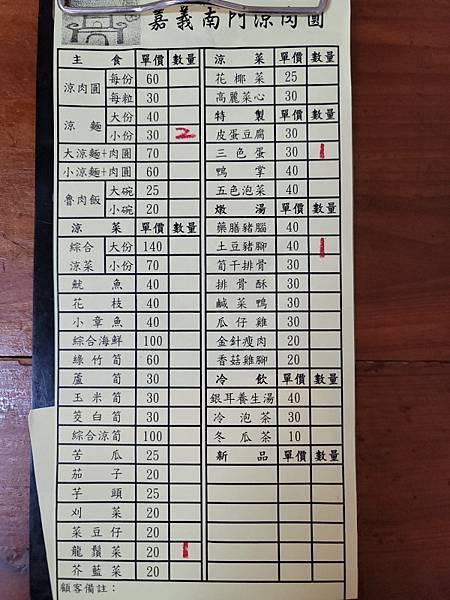 嘉義南門涼肉圓
主食 單價 數量
涼肉圓 每份 60
每粒 30
涼麵 大份 40
小份 30 2
大涼麵+肉圓 70
小涼麵+肉圓 60
魯肉飯 大碗 25
小碗 20
涼菜 單價 數量
綜合涼菜 大份 140
小份 70
魷魚 40
花枝 40
小章魚 40
綜合海鮮 100
綠竹筍 60
蘆筍 30
玉米筍 30
茭白筍 30
綜合涼筍 100
苦瓜 25
茄子 20
芋頭 25
刈菜 20
菜豆仔 20
龍鬚菜 20 1
芥藍菜 20
顧客備註：
涼菜 單價 數量
花椰菜 25
高麗菜心 30
特製 單價 數量
皮蛋豆腐 30
三色蛋 30 1
鴨掌 40
五色泡菜 40
燉湯 單價 數量
藥膳豬腦 40
土豆豬腳 40 1
筍干排骨 30
排骨酥 30
鹹菜鴨 30
瓜仔雞 30
金針瘦肉 20
香菇雞腳 20
冷飲 單價 數量
銀耳養生湯 40
冷泡茶 30
冬瓜茶 10
新品 單價 數量